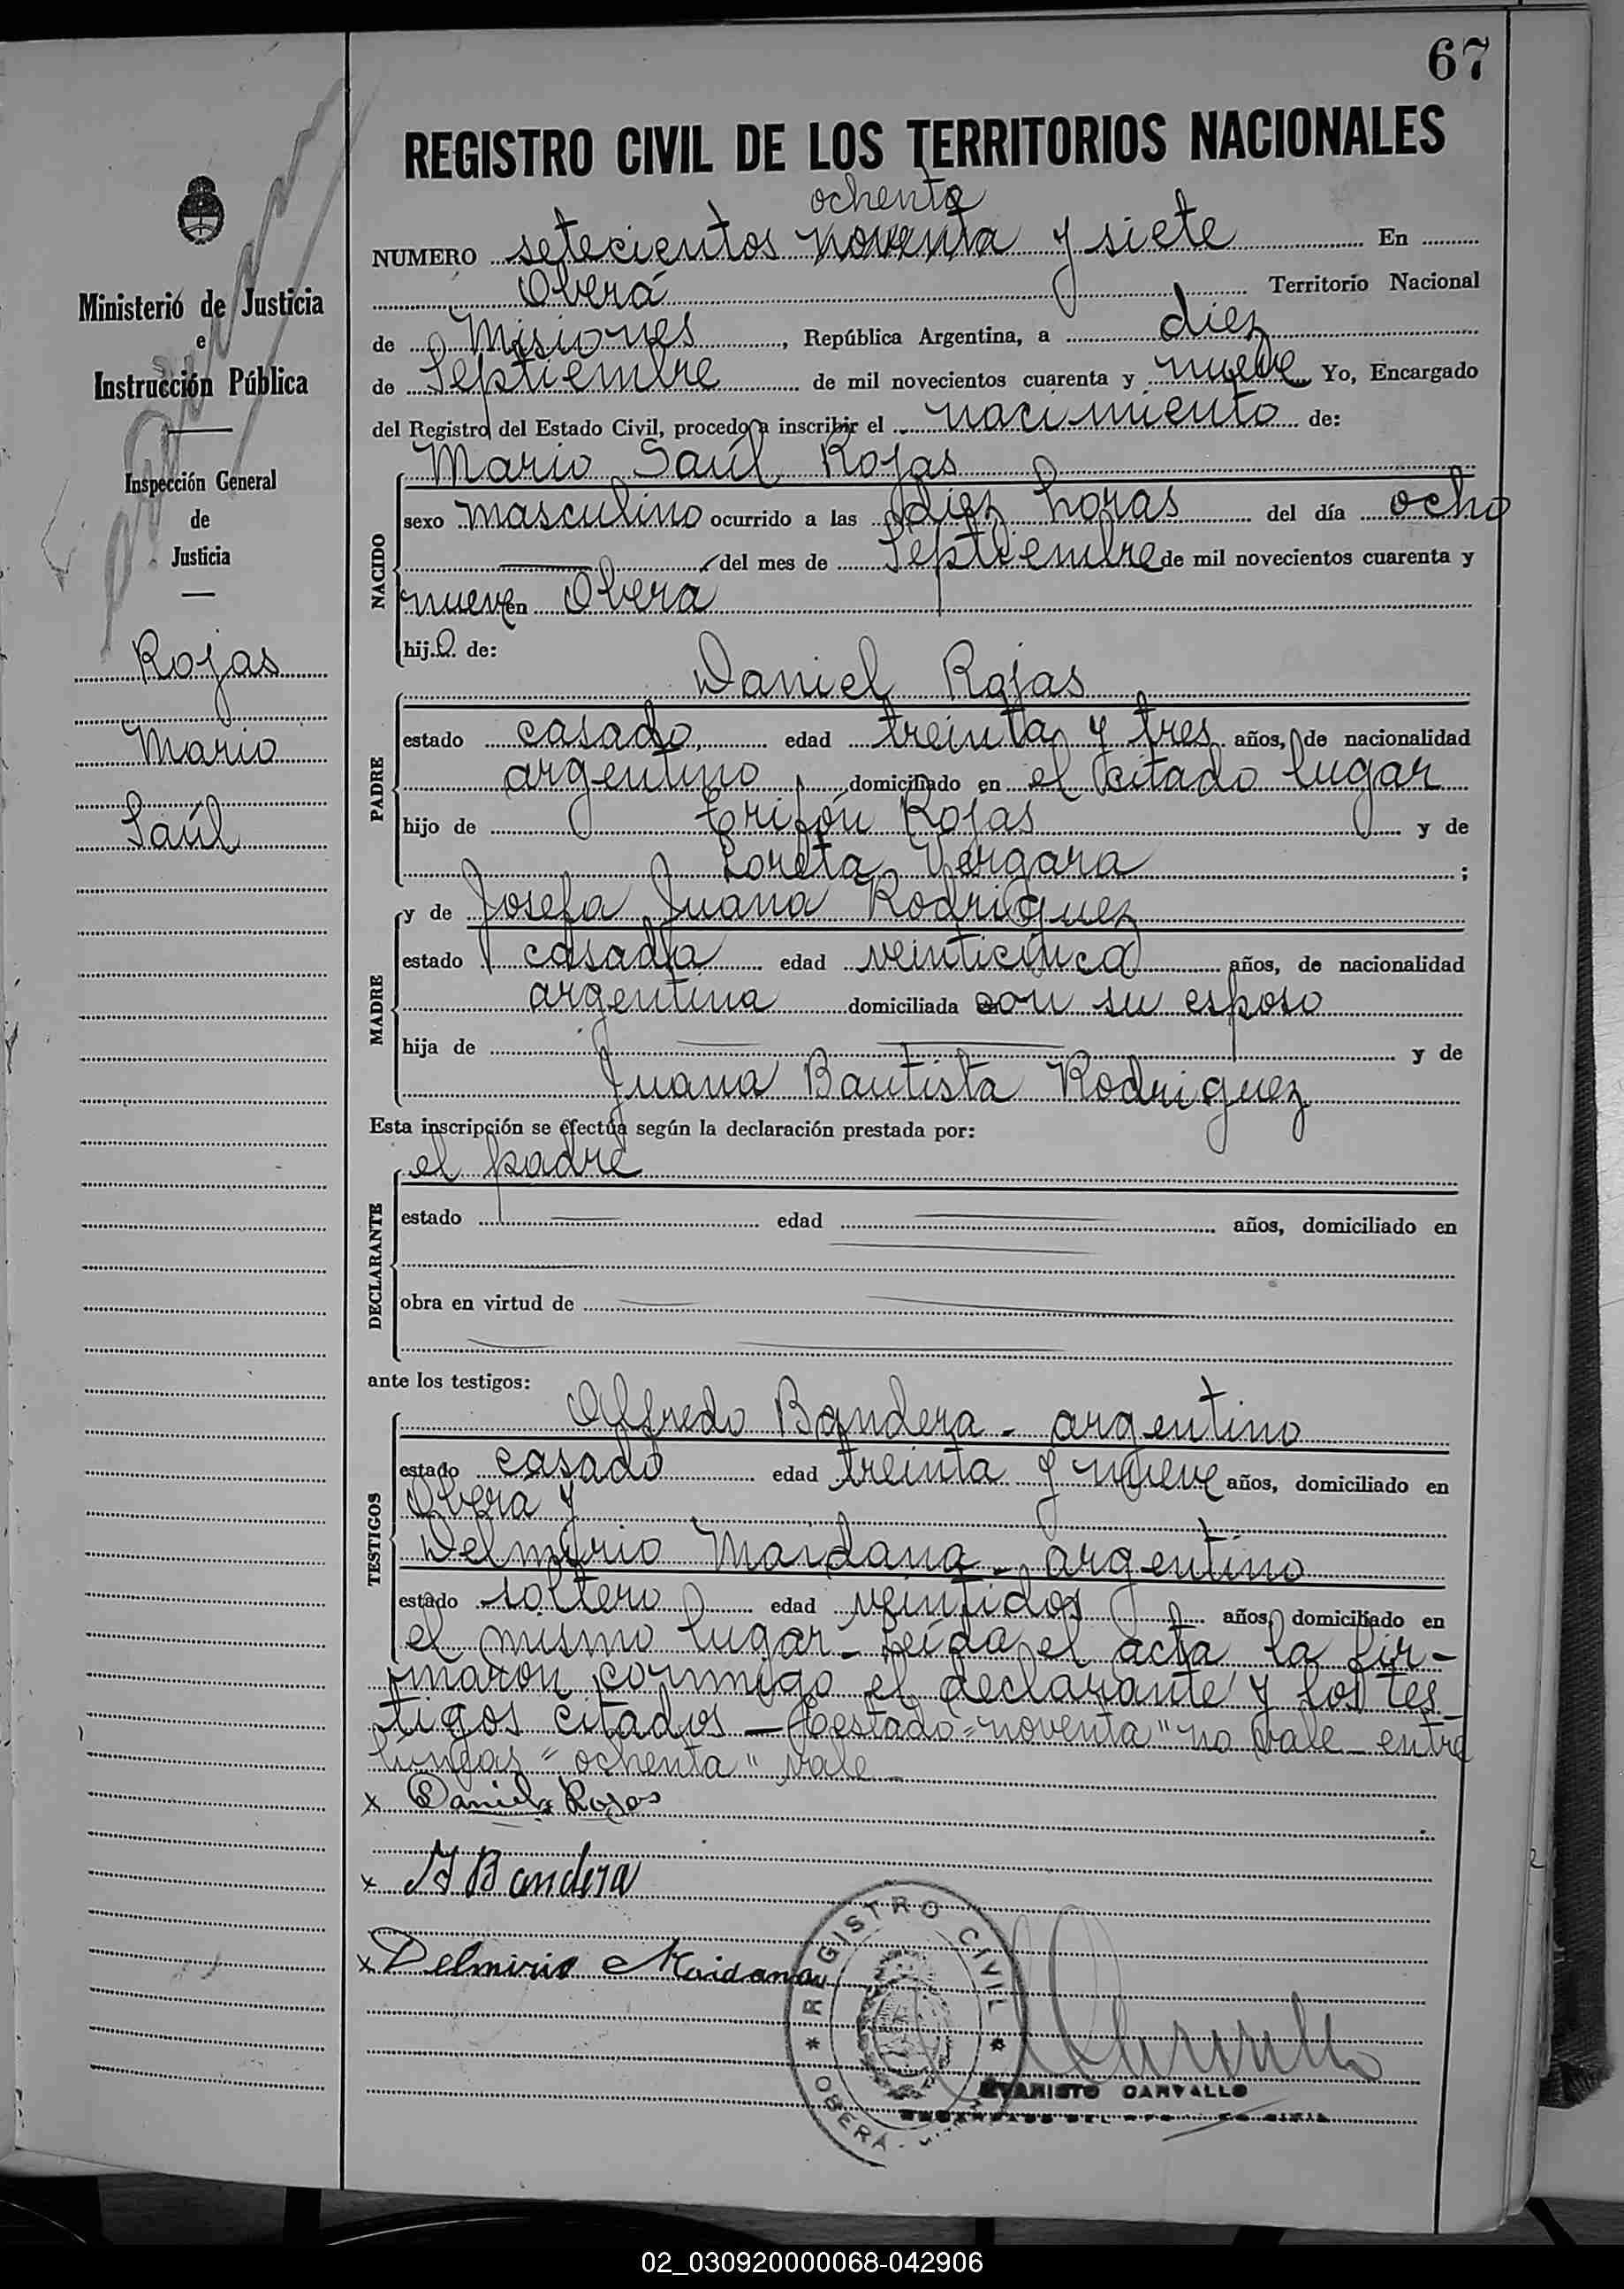 67
REGISTRO CIVIL DE LOS TERRITORIOS NACIONALES
ochenta
NUMERO setecientos noventa y siete En
Oberá Territorio Nacional
de Misiones, República Argentina, a diez
de Septiembre de mil novecientos cuarenta y nueve Yo, Encargado
del Registro del Estado Civil, procedo a inscribir el nacimiento de:
Ministerio de Justicia
e
Instrucción Pública
Inspección General
de
Justicia
Rojas
Mario
Saúl
NACIDO
Mario Saúl Rojas
sexo masculino ocurrido a las diez horas del día ocho
del mes de Septiembre de mil novecientos cuarenta y
nueve en Oberá
hijo de:
PADRE
Daniel Rojas
estado casado, edad treinta y tres años, de nacionalidad
argentino domiciliado en el citado lugar
hijo de Trifón Rojas y de
Loreta Vergara ;
MADRE
y de Josefa Juana Rodriguez
estado casada edad veinticinco años, de nacionalidad
argentina domiciliada con su esposo
hija de y de
Juana Bautista Rodriguez
Esta inscripción se efectúa según la declaración prestada por:
DECLARANTE
el padre
estado edad años, domiciliado en
obra en virtud de
ante los testigos:
TESTIGOS
Alfredo Bandera - argentino
estado casado edad treinta y nueve años, domiciliado en
Oberá y
Delmirio Maidana - argentino
estado soltero edad veintidos años, domiciliado en
el mismo lugar - Leída el acta la fir-
maron conmigo el declarante y los tes
tigos citados - "noventa" no vale - entre
líneas "ochenta" vale
x Daniel Rojas
x A Bandera
x Delmirio Maidana
REGISTRO CIVIL
OBERÁ
EVARISTO CARVALLO
02_030920000068-042906